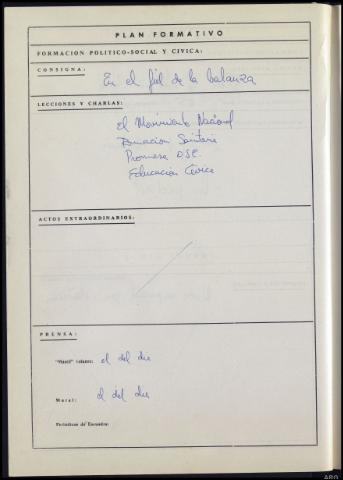 PLAN FORMATIVO
FORMACION POLITICO-SOCIAL Y CIVICA:
CONSIGNA:
En el fiel de la balanza
LECCIONES Y CHARLAS:
El Movimiento Nacional
Formacion Sanitaria
Promesa
Educacion Civica
ACTOS EXTRAORDINARIOS:
PRENSA:
el del dia
Mural: el del dia
Periódicos de Escuadra: